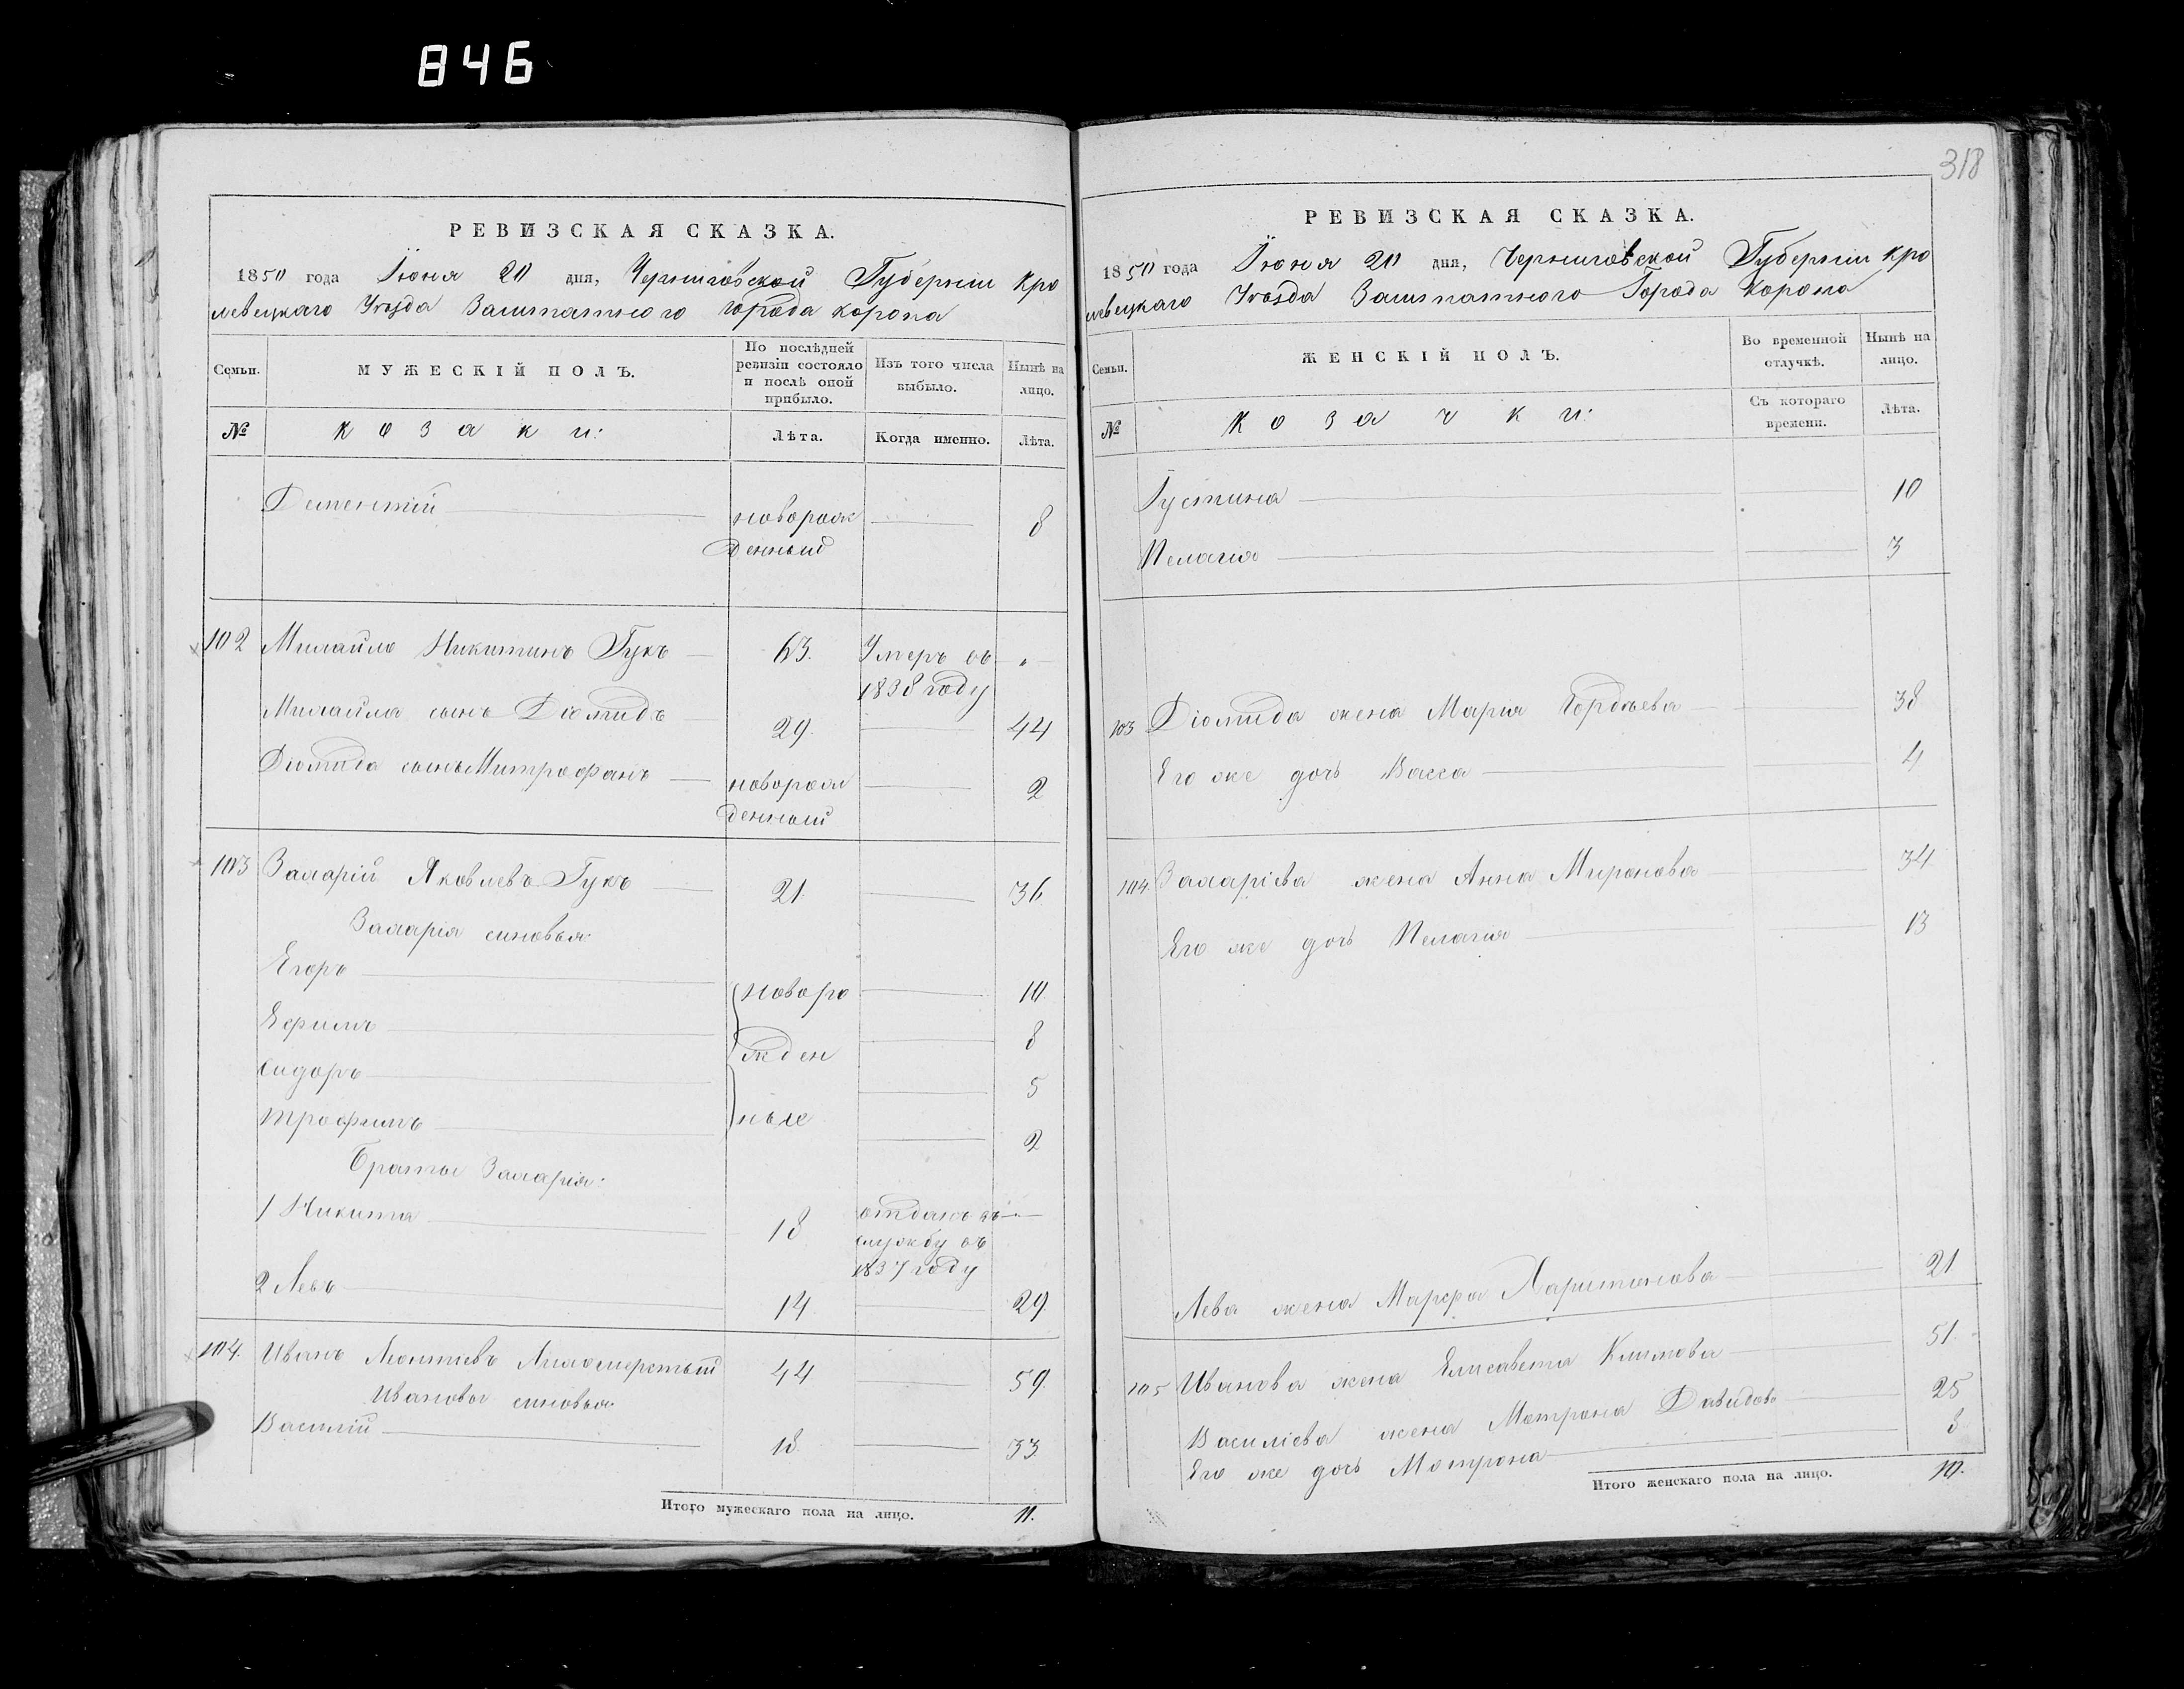 846
РЕВИЗСКАЯ СКАЗКА.
1850 года Іюня 20 дня, Черниговской Губерніи Кро
левецкаго Уѣзда Заштатного города Коропа
Семьи.
МУЖЕСКІЙ ПОЛЪ.
По послѣдней ревизіи состояло и послѣ оной прибыло.
Изъ того числа выбыло.
Нынѣ на лицо.
№
Козаки:
Лѣта.
Когда именно.
Лѣта.
Дементій новорож 8
денный
102 Михайло Никитинъ Гукъ 63. Умеръ въ "
1838 году
Михайла сынъ Діомидъ 29. 44
Діомида сынъ Митрофанъ новорож 2
денный
103 Захарій Яковлевъ Гукъ 21. 36
Захарія синовья:
Егоръ новоро 10
Ефимъ жден 8
Сидоръ 5
Трофимъ ные 2
Браты Захарія:
1 Никита 18 отданъ въ
службу въ
1837 году
2 Левъ 14. 29
104. Иванъ Леонтіевъ 44 59.
Ивановы синовья
Василій 18. 33
Итого мужескаго пола на лицо. 11.
318
РЕВИЗСКАЯ СКАЗКА.
1850 года Іюня 20 дня, Черниговской Губерніи Кро
левецкаго Уѣзда Заштатного Города Коропа
Семьи.
ЖЕНСКІЙ ПОЛЪ.
Во временной отлучкѣ.
Нынѣ на лицо.
№
Козачки:
Съ котораго времени.
Лѣта.
Іустина 10
Пелагия 3
103 Діомида жена Мария Гордѣева 38
Его же дочь Васса 4
104. Захаріева жена Анна Миронова 34
Его же дочь Пелагия 13
Лева жена Марфа Харитонова 21
105 Иванова жена Елисавета Климова 51
Василіева жена Мотрона Давидова 25
Его же дочь Мотрона 3
Итого женскаго пола на лицо. 10.